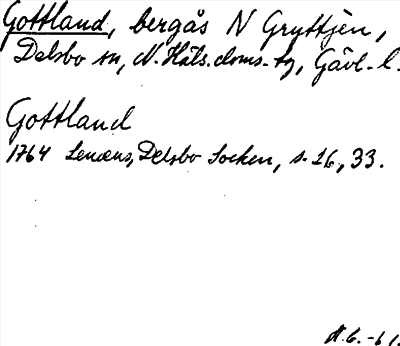 Gottland, bergås N Gryttjen,
Delsbo sn, N. Häls. doms.-tg, Gävl. l.
Gottland
1764 Lenæus, Delsbo Socken, s. 26, 33.